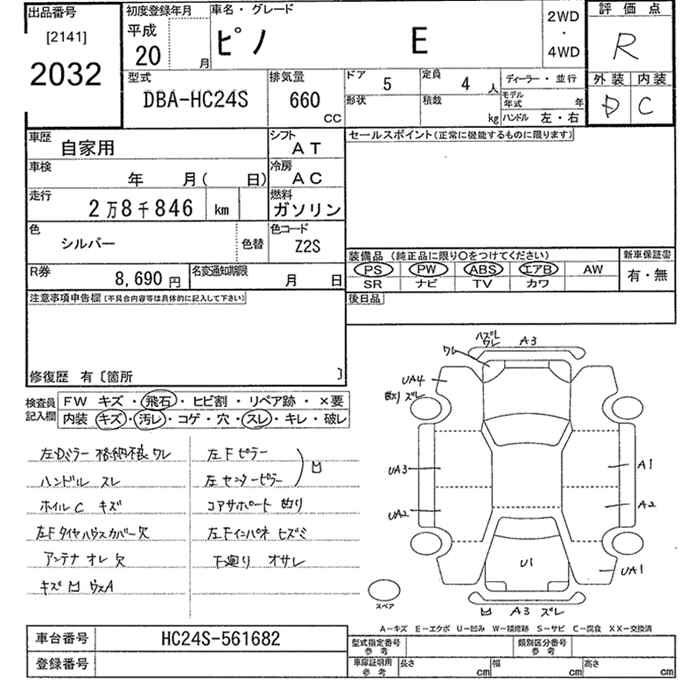 出品番号
[2141]
2032
初度登録年月
平成
20 月
車名・グレード
ピノ E
2WD
・
4WD
評価点
R
型式
DBA-HC24S
排気量
660
CC
ドア 5
定員 4 人
形状
積載 kg
ディーラー・並行
モデル年式 年
ハンドル 左・右
外装 内装
D C
車歴
自家用
シフト
AT
セールスポイント(正常に機能するものに限ります)
車検
年 月( 日)
冷房
AC
走行
2万8千846 km
燃料
ガソリン
色
シルバー
色替
色コード
Z2S
装備品(純正品に限り○をつけてください)
新車保証書
PS PW ABS エアB AW
有・無
SR ナビ TV カワ
R券
8,690 円
名変通知期限
月 日
後日品
注意事項申告欄(不具合内容等は具体的に記入して下さい)
修復歴 有〔箇所 〕
検査員
記入欄
FW キズ・飛石・ヒビ割・リペア跡・×要
内装・キズ・汚レ・コゲ・穴・スレ・キレ・破レ
左Dミラー 格納不良 ワレ
ハンドル スレ
ホイルC キズ
左Fタイヤハウスカバー欠
アンテナ オレ 欠
キズ 凹 ウスA
左Fピラー
左センターピラー
凹
コアサポート 曲り
左Fインパネ ヒズミ
下廻り オサレ
ハズレ
ワレ
A3
ワレ
UA4
曲り ズレ
UA3
UA2
A1
A2
U1
UA1
凹 A3 ズレ
スペア
A－キズ E－エクボ U－凹み W－補修跡 S－サビ C－腐食 XX－交換済
車台番号
HC24S-561682
登録番号
型式指定番号
参考
類別区分番号
参考
車庫証明用
参考
長さ cm 幅 cm 高さ cm